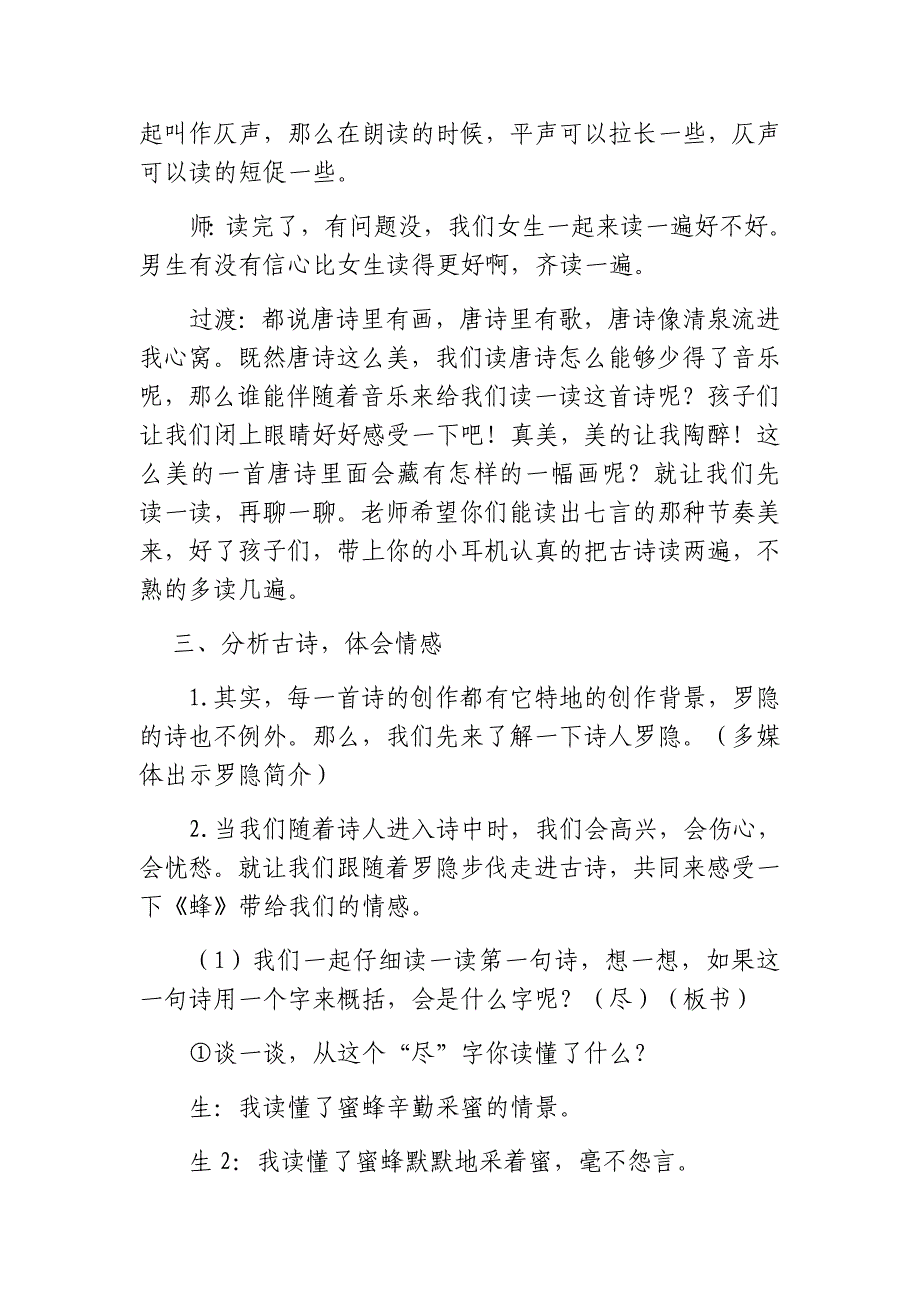 起叫作仄声，那么在朗读的时候，平声可以拉长一些，仄声
可以读的短促一些。
师: 读完了，有问题没，我们女生一起来读一遍好不好。
男生有没有信心比女生读得更好啊，齐读一遍。
过渡：都说唐诗里有画，唐诗里有歌，唐诗像清泉流进
我心窝。既然唐诗这么美，我们读唐诗怎么能够少得了音乐
呢，那么谁能伴随着音乐来给我们读一读这首诗呢？孩子们
让我们闭上眼睛好好感受一下吧！真美，美的让我陶醉！这
么美的一首唐诗里面会藏有怎样的一幅画呢？就让我们先
读一读，再聊一聊。老师希望你们能读出七言的那种节奏美
来，好了孩子们，带上你的小耳机认真的把古诗读两遍，不
熟的多读几遍。
三、分析古诗，体会情感
1.其实，每一首诗的创作都有它特地的创作背景，罗隐
的诗也不例外。那么，我们先来了解一下诗人罗隐。（多媒
体出示罗隐简介）
2.当我们随着诗人进入诗中时，我们会高兴，会伤心，
会忧愁。就让我们跟随着罗隐步伐走进古诗，共同来感受一
下《蜂》带给我们的情感。
（1）我们一起仔细读一读第一句诗，想一想，如果这
一句诗用一个字来概括，会是什么字呢？（尽）（板书）
①谈一谈，从这个“尽”字你读懂了什么？
生：我读懂了蜜蜂辛勤采蜜的情景。
生 2：我读懂了蜜蜂默默地采着蜜，毫不怨言。